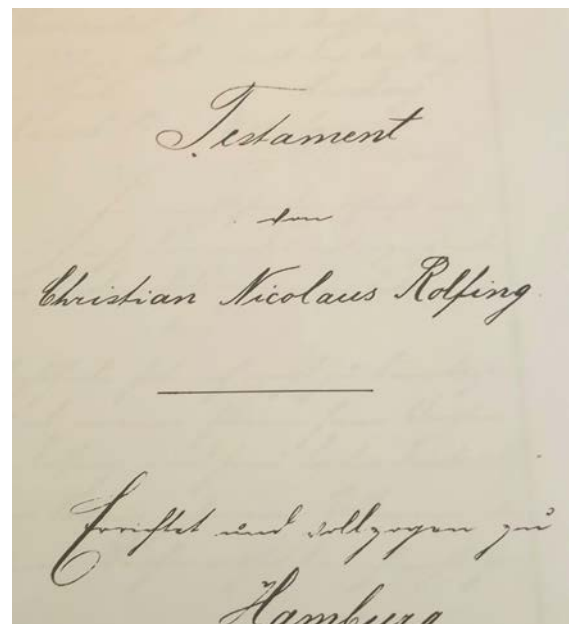 Testament
von
Christian Nicolaus Rolfing.
Errichtet und vollzogen zu
Hamburg